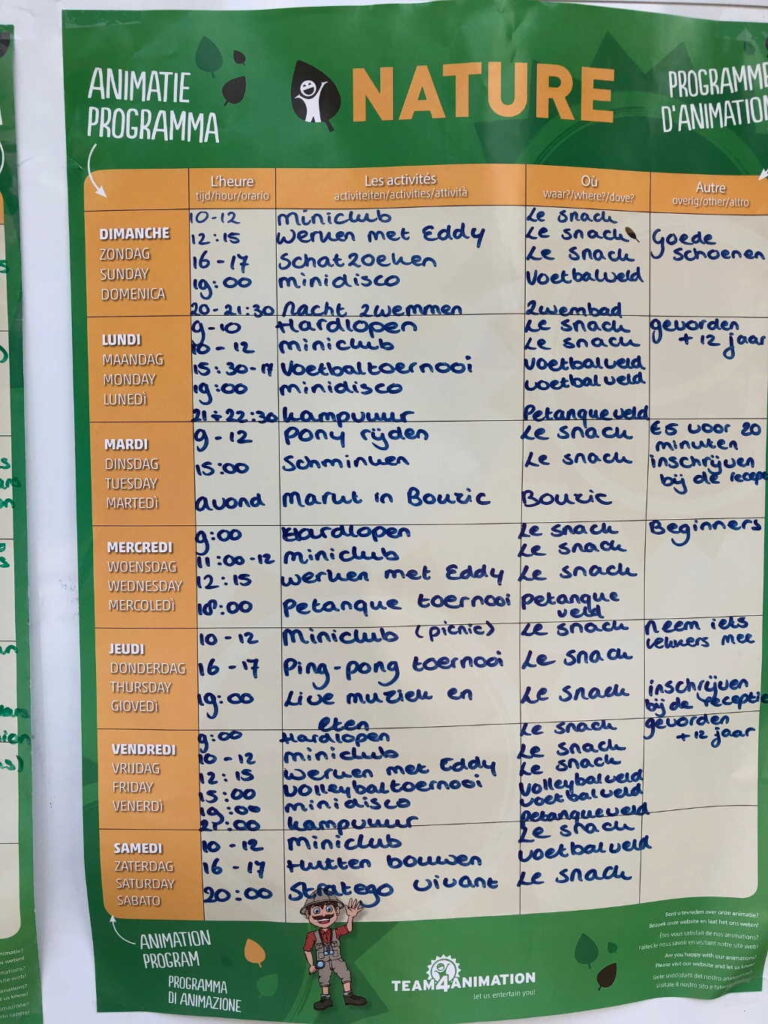 ANIMATIE
PROGRAMMA
NATURE
PROGRAMME
D'ANIMATION
L'heure
tijd/hour/orario
Les activités
activiteiten/activities/attività
Où
waar?/where?/dove?
Autre
overig/other/altro
DIMANCHE
ZONDAG
SUNDAY
DOMENICA
10-12 miniclub Le snack
12:15 werken met Eddy Le snack Goede
16-17 Schatzoeken Le snack schoenen
19:00 minidisco Voetbalveld
20-21:30 Nacht zwemmen zwembad
LUNDI
MAANDAG
MONDAY
LUNEDÌ
9-10 Hardlopen Le snack gevorden
10-12 miniclub Le snack + 12 jaar
15:30-17 Voetbaltoernooi voetbalveld
19:00 minidisco voetbalveld
21÷22:30 kampvuur Petanqueveld
MARDI
DINSDAG
TUESDAY
MARTEDÌ
9-12 Pony rijden Le snack €5 voor 20
minuten
15:00 Schminken Le snack inschrijven
bij de recep
avond Markt in Bouzic Bouzic
MERCREDI
WOENSDAG
WEDNESDAY
MERCOLEDÌ
9:00 Hardlopen Le snack Beginners
11:00-12 miniclub Le snack
12:15 werken met Eddy Le snack
18:00 Petanque toernooi Petanque
veld
JEUDI
DONDERDAG
THURSDAY
GIOVEDÌ
10-12 Miniclub (picnic) Le snack neem iets
lekkers mee
16-17 Ping-pong toernooi Le snack
19:00 Live muziek en Le snack inschrijven
bij de receptie
eten
VENDREDI
VRIJDAG
FRIDAY
VENERDÌ
9:00 Hardlopen Le snack gevorden
10-12 miniclub Le snack + 12 jaar
12:15 werken met Eddy Le snack
15:00 Volleybaltoernooi Volleybalveld
19:00 minidisco voetbalveld
21:00 kampvuur petanqueveld
SAMEDI
ZATERDAG
SATURDAY
SABATO
10-12 miniclub Le snack
16-17 Hutten bouwen voetbalveld
20:00 Stratego vivant Le snack
ANIMATION
PROGRAM
PROGRAMMA
DI ANIMAZIONE
TEAM4ANIMATION
let us entertain you!
Bent u tevreden over onze animatie?
Bezoek onze website en laat het ons weten!
Êtes vous satisfait de nos animations?
Faites le nous savoir en visitant notre site web!
Are you happy with our animations?
Please visit our website and let us know!